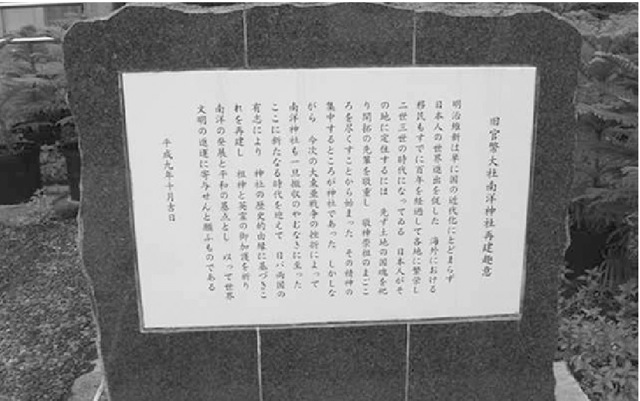 旧官幣大社南洋神社再建趣意
明治維新は単に国の近代化にとどまらず
日本人の世界進出を促した 海外における
移民もすでに百年を経過して各地に繁栄し
二世三世の時代になってゐる 日本人がそ
の地に定住するには 先ず土地の国魂を祀
り開拓の先輩を敬重し 敬神崇祖のまごこ
ろを尽くすことから始まった その精神の
集中するところが神社であった しかしな
がら 今次の大東亜戦争の挫折によって
南洋神社も一旦撤収のやむなきに至った
ここに新たなる時代を迎えて 日パ両国の
有志により 神社の歴史的由縁に基づきこ
れを再建し 祖神と英霊の御加護を祈り
南洋の発展と平和の基点とし 以って世界
文明の進運に寄与せんと願ふものである
平成九年十月吉日